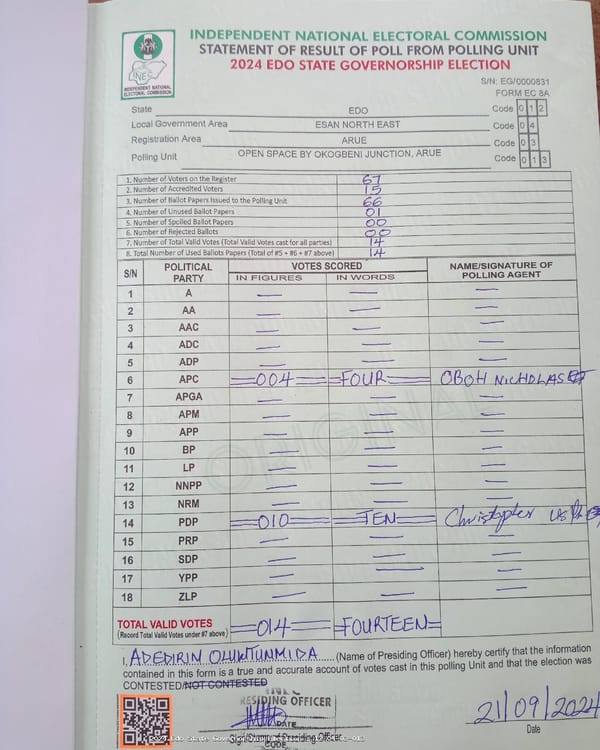 INDEPENDENT NATIONAL ELECTORAL COMMISSION
STATEMENT OF RESULT OF POLL FROM POLLING UNIT
2024 EDO STATE GOVERNORSHIP ELECTION
INEC
INDEPENDENT NATIONAL
ELECTORAL COMMISSION
S/N: EG/0000831
FORM EC 8A
State EDO Code 0 1 2
Local Government Area ESAN NORTH EAST Code 0 4
Registration Area ARUE Code 0 3
Polling Unit OPEN SPACE BY OKOGBENI JUNCTION, ARUE Code 0 1 3
1. Number of Voters on the Register 67
2. Number of Accredited Voters 15
3. Number of Ballot Papers Issued to the Polling Unit 66
4. Number of Unused Ballot Papers 01
5. Number of Spoiled Ballot Papers 00
6. Number of Rejected Ballots 00
7. Number of Total Valid Votes (Total Valid Votes cast for all parties) 14
8. Total Number of Used Ballots Papers (Total of #5 + #6 + #7 above) 14
S/N POLITICAL PARTY VOTES SCORED NAME/SIGNATURE OF POLLING AGENT
IN FIGURES IN WORDS
1 A — — —
2 AA — — —
3 AAC — — —
4 ADC — — —
5 ADP — — —
6 APC 004 FOUR OBOH NICHOLAS
7 APGA — — —
8 APM — — —
9 APP — — —
10 BP — — —
11 LP — — —
12 NNPP — — —
13 NRM — — —
14 PDP 010 TEN Christopher
15 PRP — — —
16 SDP — — —
17 YPP — — —
18 ZLP — — —
ORIGINAL
TOTAL VALID VOTES 014 FOURTEEN
(Record Total Valid Votes under #7 above)
I, ADEDIRIN OLUKITUNMIDA (Name of Presiding Officer) hereby certify that the information
contained in this form is a true and accurate account of votes cast in this polling Unit and that the election was
CONTESTED/NOT CONTESTED
INEC
PRESIDING OFFICER
DATE
Sign/Stamp of Presiding Officer
CODE
21/09/2024
Date